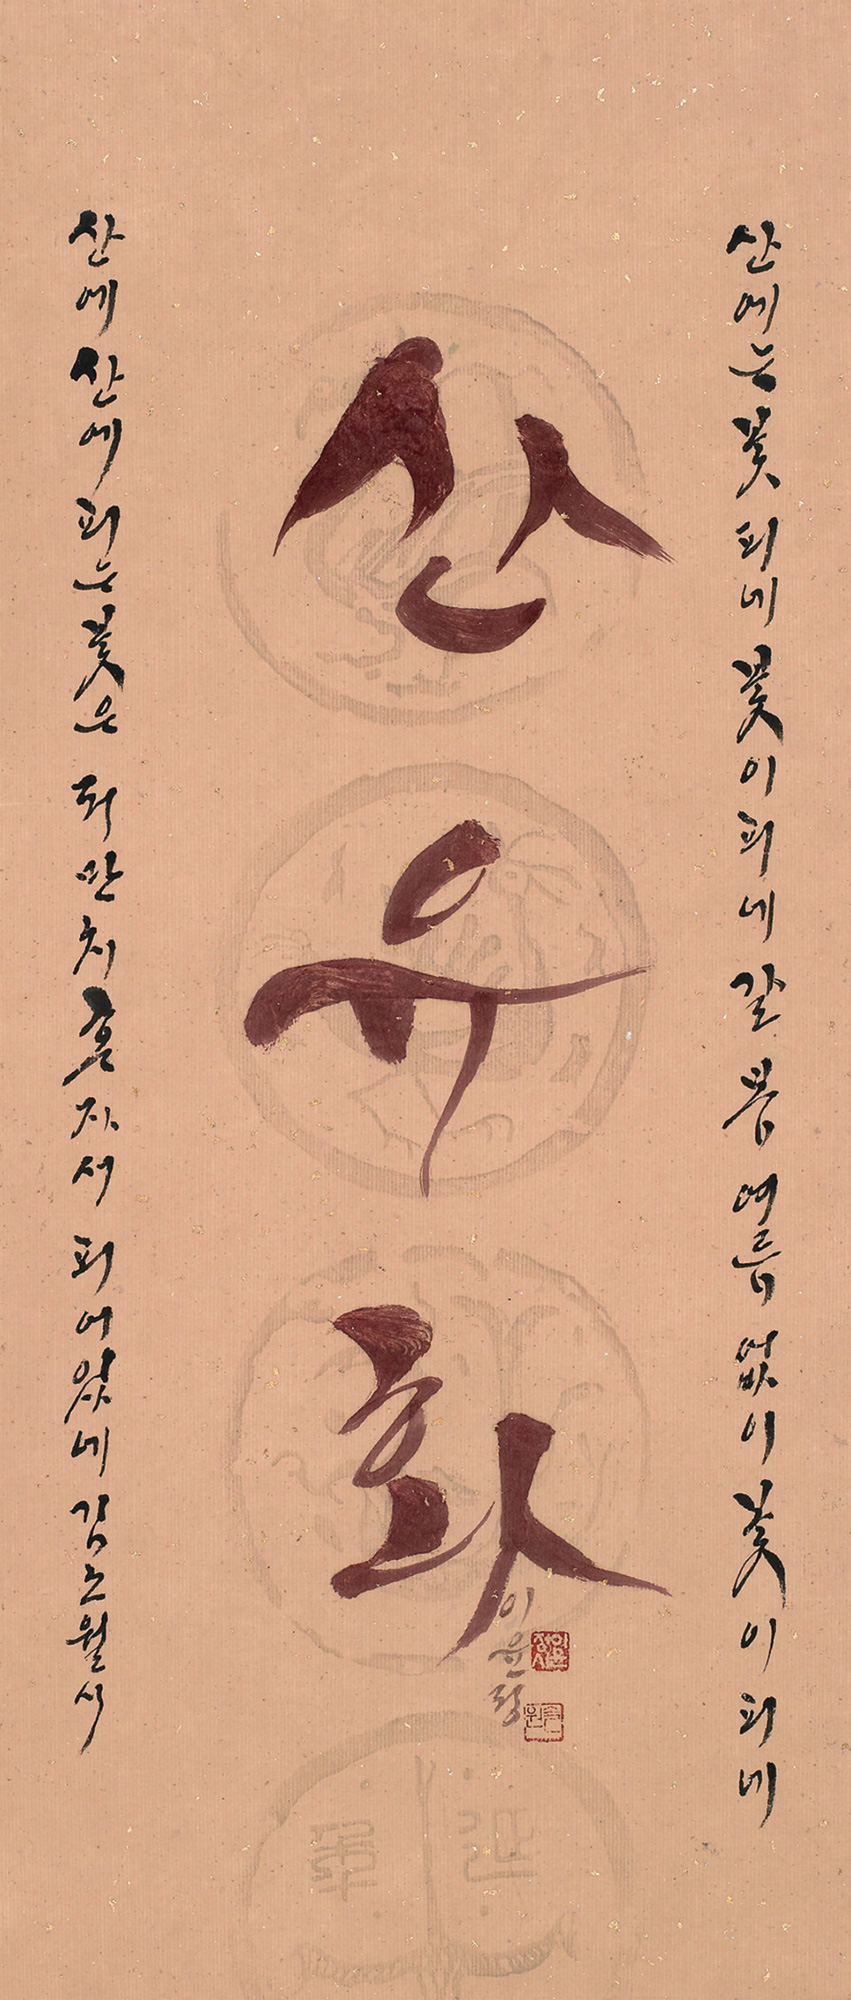 산에는 꽃 피네 꽃이 피네 갈 봄 여름 없이 꽃이 피네
산유화
산에 산에 피는 꽃은 저만치 혼자서 피어있네 김소월 시
이윤정
延年